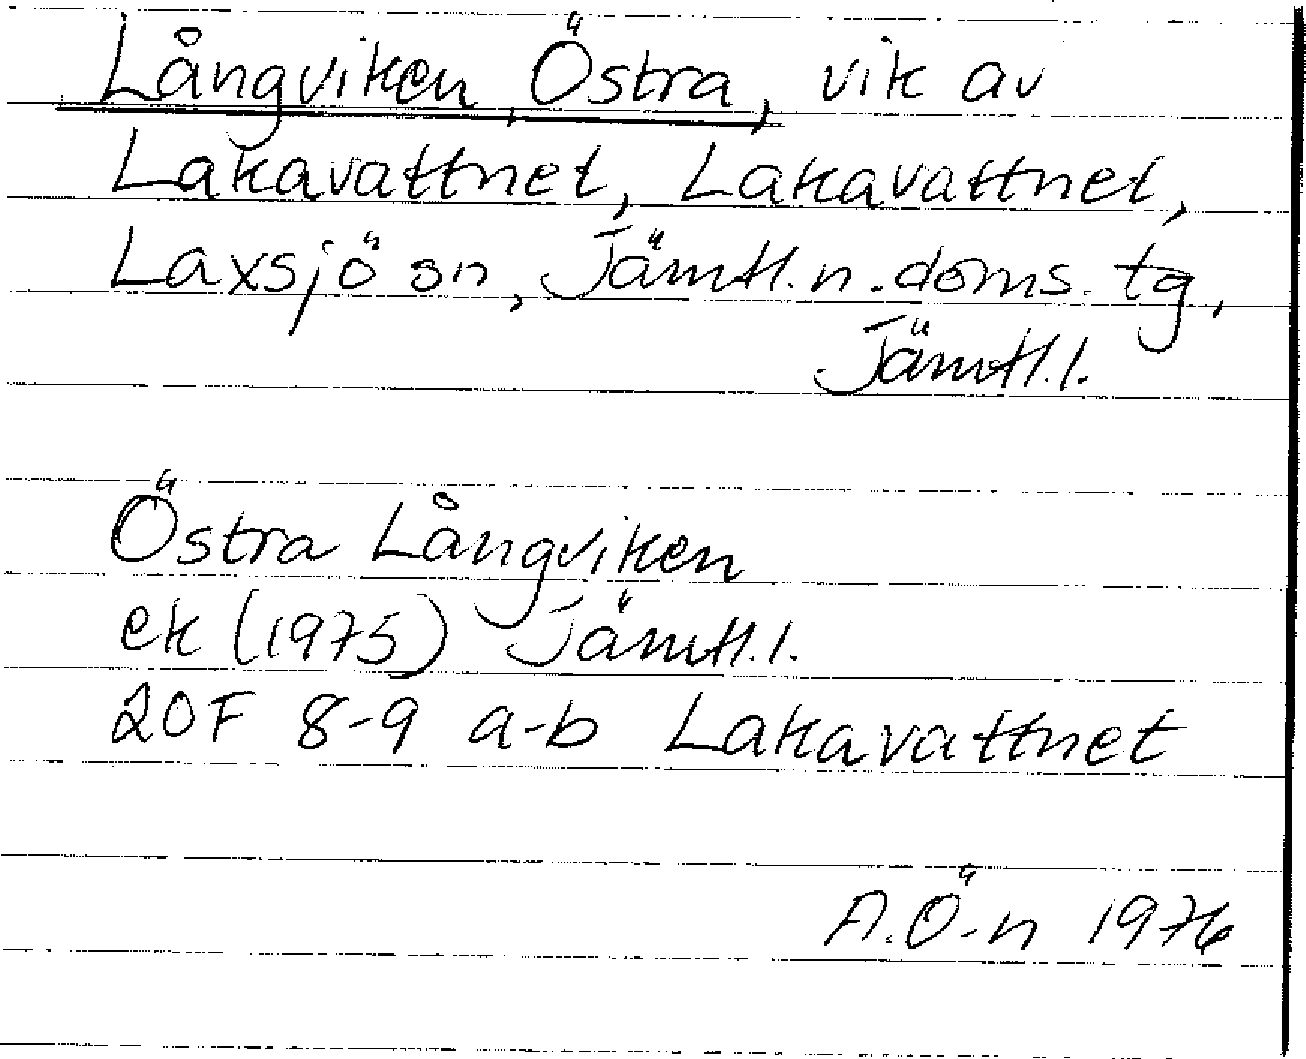 Långviken, Östra, vik av
Lakavattnet, Lakavattnet,
Laxsjö sn, Jämtl.n.doms.tg,
Jämtl.l.
Östra Långviken
ek (1975) Jämtl.l.
20F 8-9 a-b Lakavattnet
A.Ö-n 1976